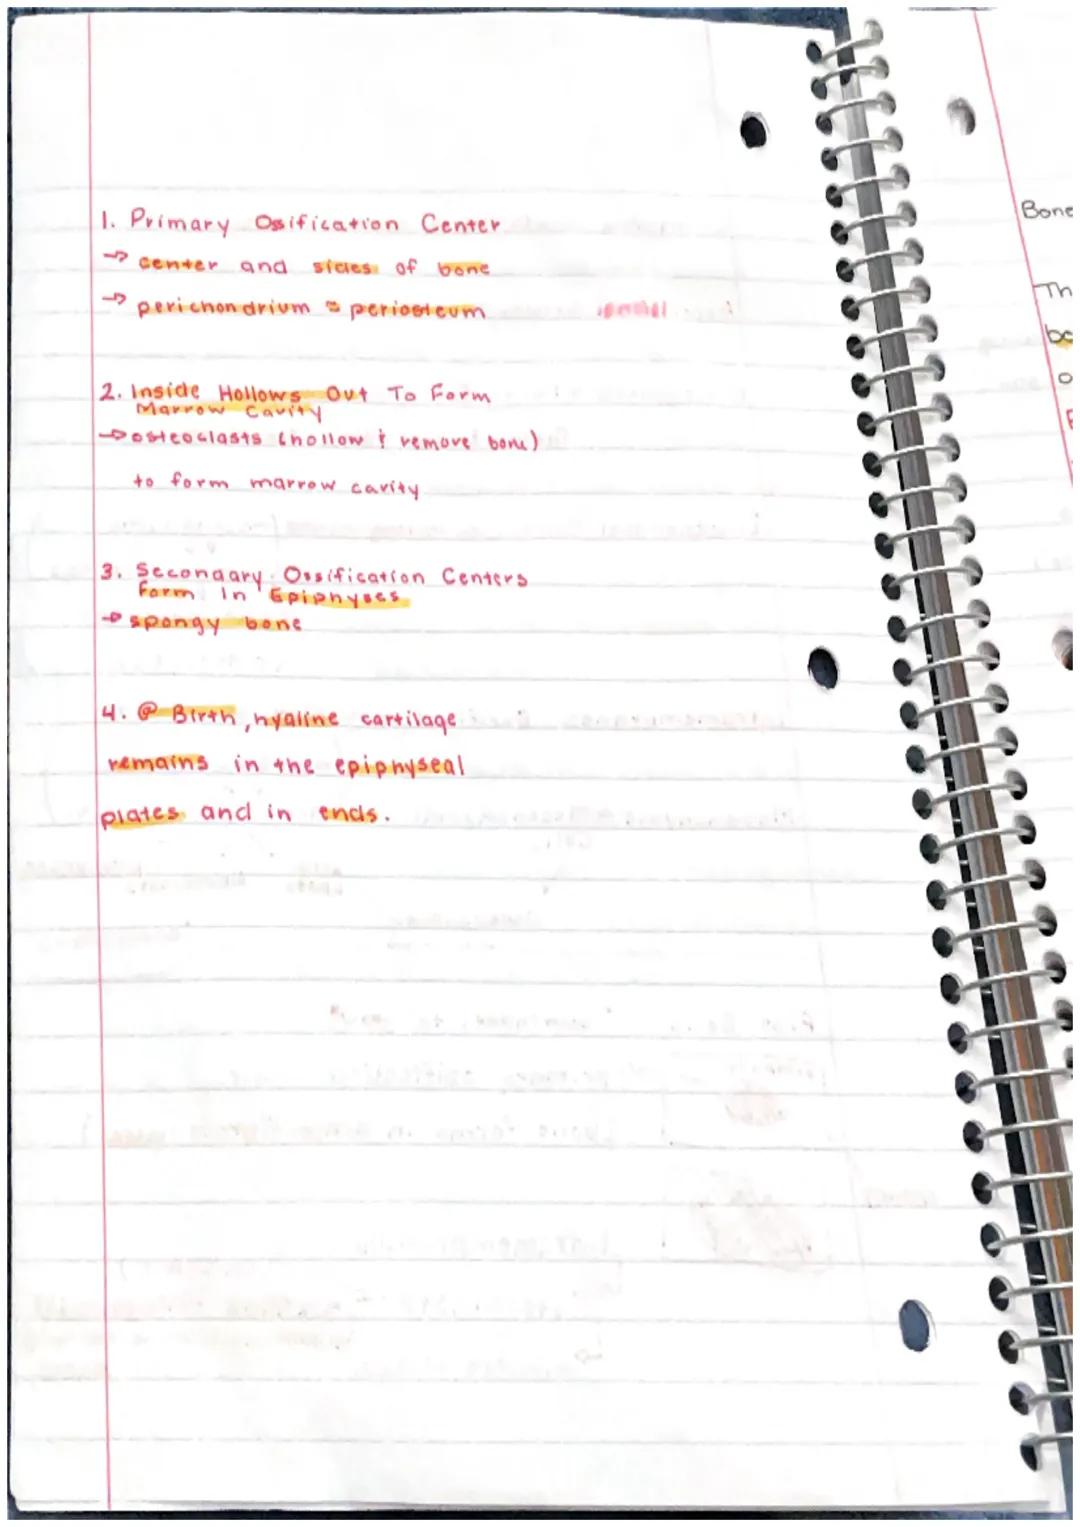 1. Primary Ossification Center
→ center and sides of bone
→ perichondrium ≈ periosteum
2. Inside Hollows Out To Form
Marrow Cavity
→ osteoclasts (hollow & remove bone)
to form marrow cavity
3. Secondary Ossification Centers
Form In Epiphyses
→ spongy bone
4. @ Birth, hyaline cartilage
remains in the epiphyseal
plates and in ends.
Bone
Th